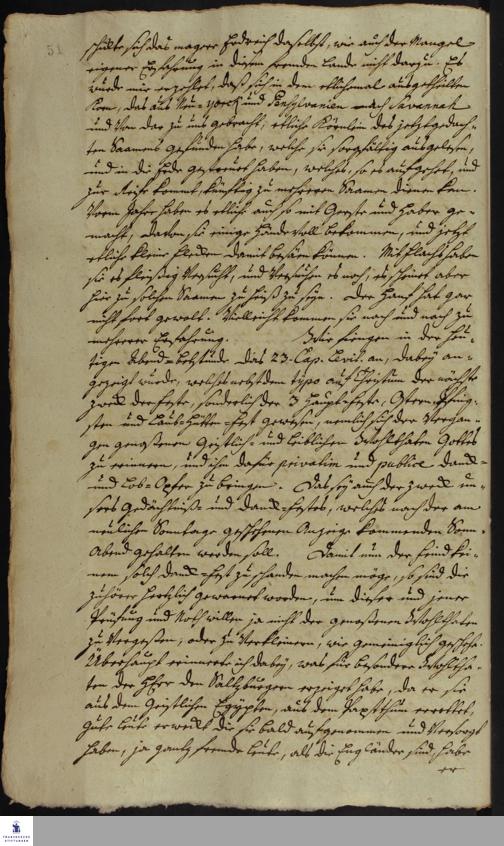 51
schickte sich das magere Erdreich daselbst, wie auch der Mangel
eigener Erfahrung in diesem fremden Lande nicht darzu. Es
wurde mir erzehlet, daß sich in dem etlichemal ausgetheilten
Korn, das aus Neu-yorck und Pensylvanien nach Savannah
und von dar zu uns gebracht, etliche Körnlein des jetztgedach-
ten Saamens gefunden habe, welche sie sorgfältig ausgelesen,
und in die Erde gestreuet haben, welches, so es aufgehet, und
zur Reife kommt, künftig zu mehreren Saamen dienen kan.
Vorm Jahre haben es etliche auch so mit Gerste und Haber ge-
macht, davon sie einige Hände voll bekommen, und jetzt
etliche kleine Flecken damit besäen können. Mit Flachs haben
sie es fleissig versucht, und versuchen es noch; es scheinet aber
hier zu solchen Saamen zu heiß zu seyn. Der Hanf hat gar
nicht fort gewolt. Vielleicht kommen sie nach und nach zu
mehrerer Erfahrung. Wir fiengen in der heu-
tigen Abend-Betstunde das 23. Cap. Levit. an, dabey an-
gezeigt wurde, welches nebst dem typo auf Christum der nächste
zweck der Feste, sonderlich der 3 Haupt-Feste, Ostern, Pfing-
sten und Laub-Hütten-Fest gewesen, nemlich sich der vergan-
genen genossenen Geistlich- und leiblichen Wohlthaten Gottes
zu erinnern, und ihm dafür privatim und publice Danck-
und Lob-Opfer zu bringen. Das sey auch der zweck un-
sers Gedächtniß- und Danck-Festes, welches nach der am
neulichen Sonntage geschehenen Anzeige kommenden Sonn-
abend gehalten werden soll. Damit nun der Feind kei-
nen solch Danck-Fest zu schanden machen möge, so sind die
zuhörer hertzlich gewarnet worden, um dieser und jener
Prüfung und Noth willen ja nicht der genossenen Wohlthaten
zu vergessen, oder zu verkleinern, wie gemeiniglich geschehe.
Überhaupt erinnerte ich dabey, was für besondere Wohltha-
ten der HErr den Saltzburgern erzeiget habe, da er sie
aus dem Geistlichen Egypten, aus dem Papstthum errettet,
gute Leute erweckt die sie bald aufgenommen und versorgt
haben, ja gantz fremde Leute, als die Engländer sind, habe
er
FRANCKESCHE STIFTUNGEN